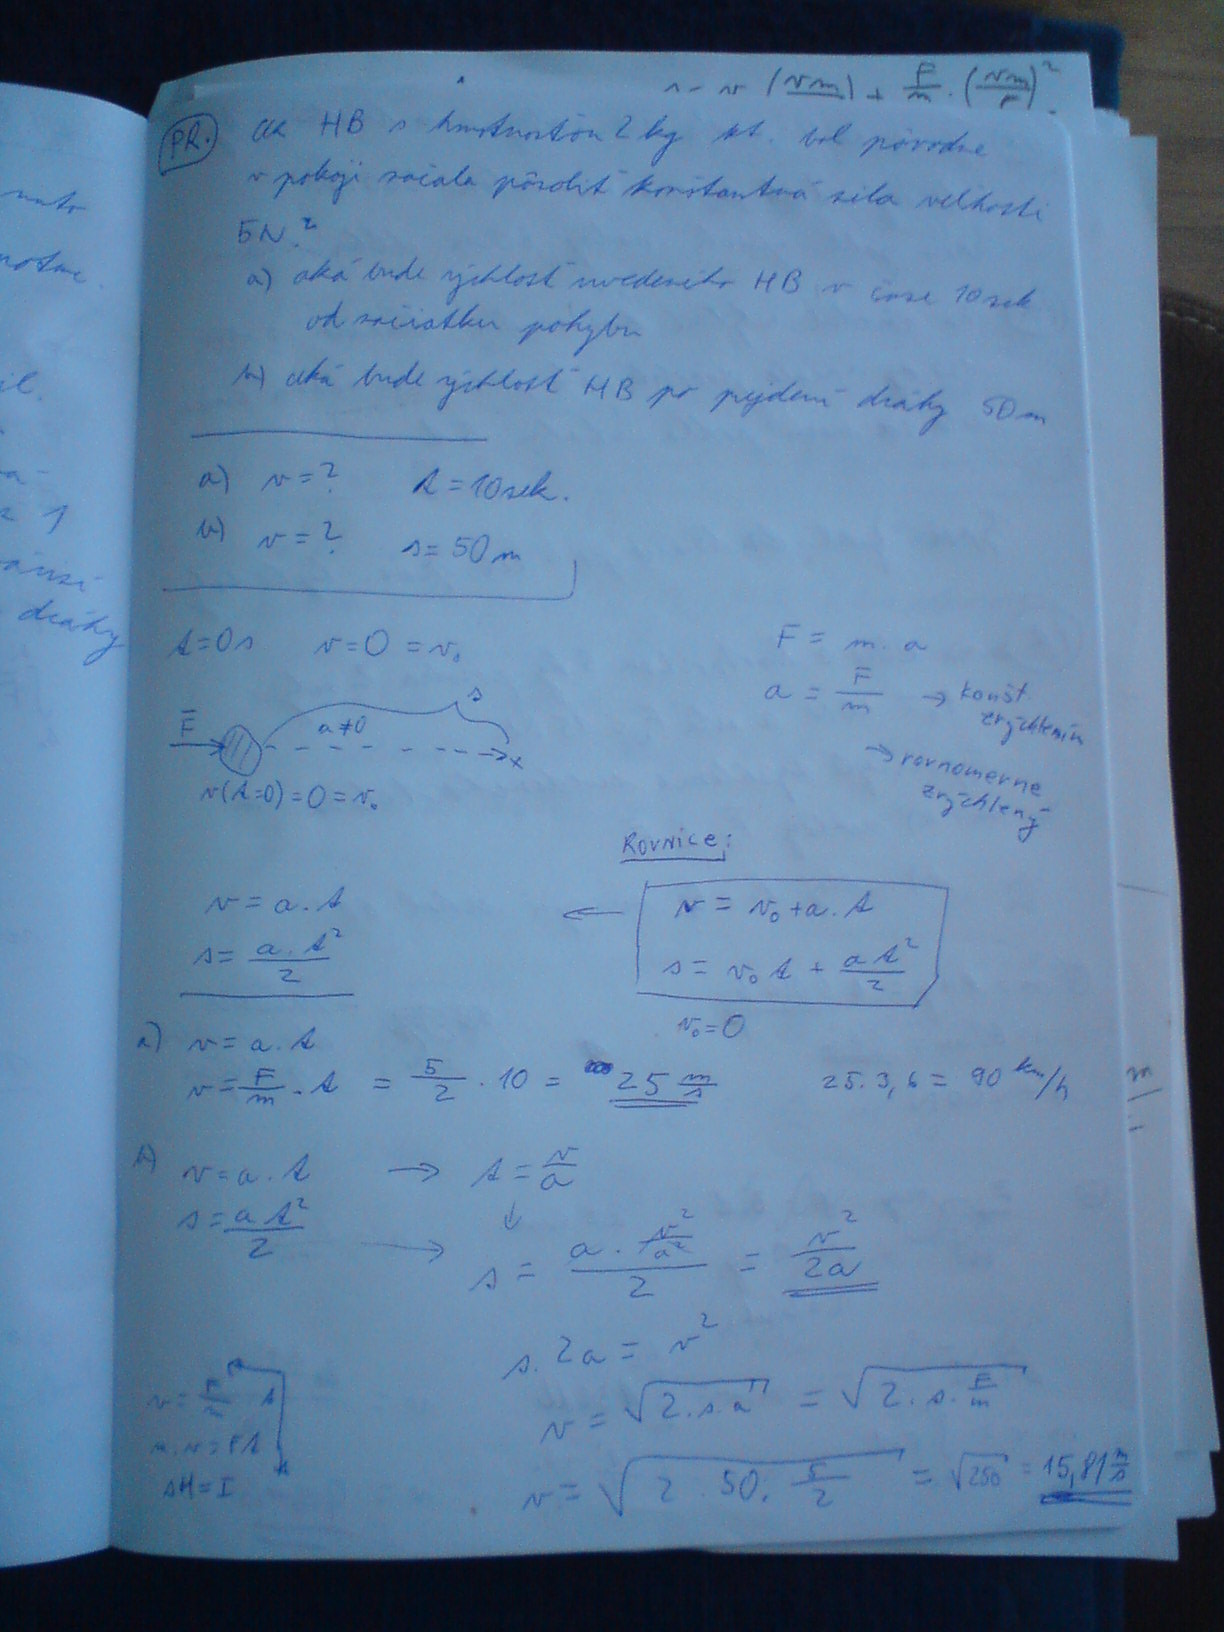 (vm) + F/m · (vm/F)²
PR. ak HB s hmotnosťou 2 kg kt. bol pôvodne
v pokoji začala pôsobiť konštantná sila veľkosti
5N.?
a) aká bude rýchlosť uvedeného HB v čase 10 sek
od začiatku pohybu
b) aká bude rýchlosť HB po prejdení dráhy 50 m
a) v = ? t = 10 sek.
b) v = ? s = 50 m
t = 0 s v = 0 = v₀
F = m . a
a = F/m → konšt.
zrýchlením
→ rovnomerne
zrýchlený
F a ≠ 0 s x
v(t=0) = 0 = v₀
ROVNICE:
v = a . t ← v = v₀ + a . t
s = a . t²/2 s = v₀ t + a t²/2
v₀ = 0
a) v = a . t
v = F/m . t = 5/2 . 10 = 25 m/s 25 . 3,6 = 90 km/h
b) v = a . t → t = v/a
s = a t²/2 → s = a . v²/a² / 2 = v²/2a
s . 2a = v²
v = √2.s.a = √2 . s . F/m
v = √2 . 50 . 5/2 = √250 = 15,81 m/s
v = F/m t
m . v = F t
ΔH = I
dráhy